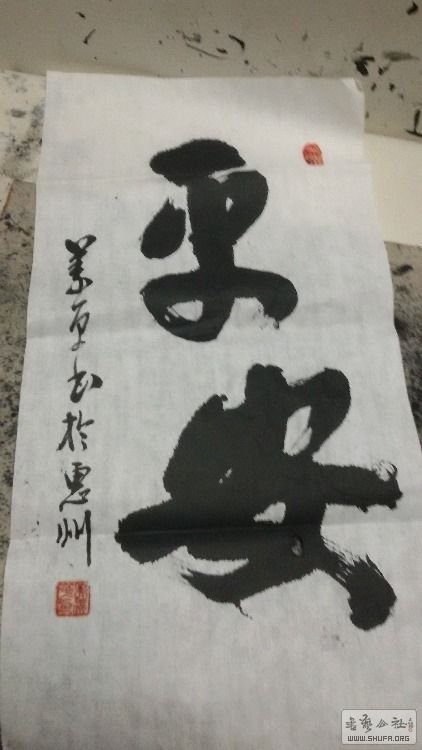 平安
原书于惠州
书艺公社
WWW.SHUFA.ORG